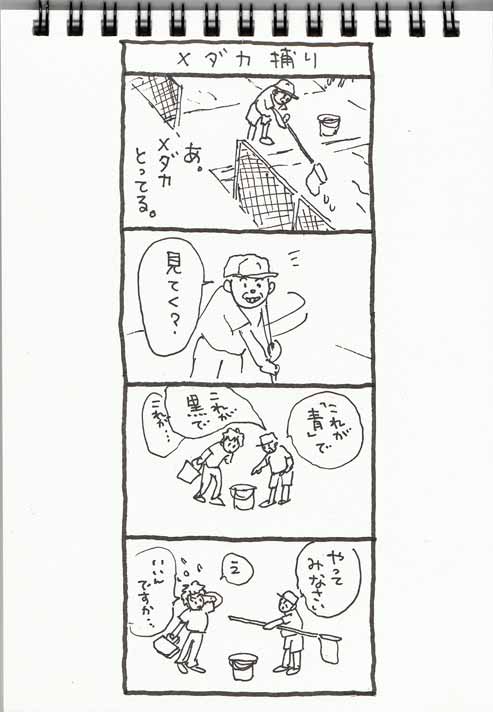 メダカ捕り
あ。
メダカ
とってる。
見てく?
「これが
「青」で
これが
黒で
これが…
やって
みなさい
え
いいん
ですか…